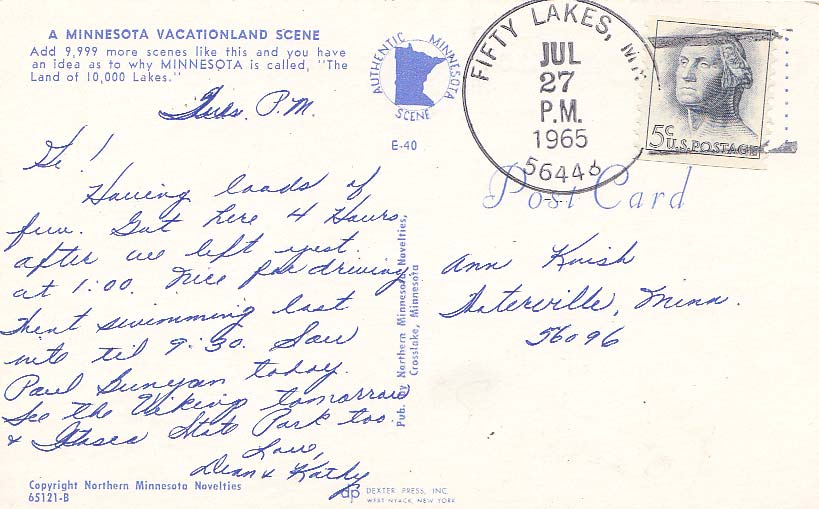 A MINNESOTA VACATIONLAND SCENE
Add 9,999 more scenes like this and you have
an idea as to why MINNESOTA is called, "The
Land of 10,000 Lakes."
AUTHENTIC MINNESOTA
SCENE
E-40
FIFTY LAKES,
JUL
27
P.M.
1965
56448
5c
U.S. POSTAGE
Post Card
Tues. P.M.
Hi!
Having loads of
fun. Got here 4 Hours
after we left yest.
at 1:00. Nice for driving.
Went swimming last
nite til 9:30. Saw
Paul Bunyan today.
See the Viking tomorrow
& Itasca State Park too.
Love,
Dean & Kathy
Pub. by Northern Minnesota Novelties,
Crosslake, Minnesota
Ann Knish
Waterville, Minn.
56096
Copyright Northern Minnesota Novelties
65121-B
dp
DEXTER PRESS, INC.
WEST NYACK, NEW YORK